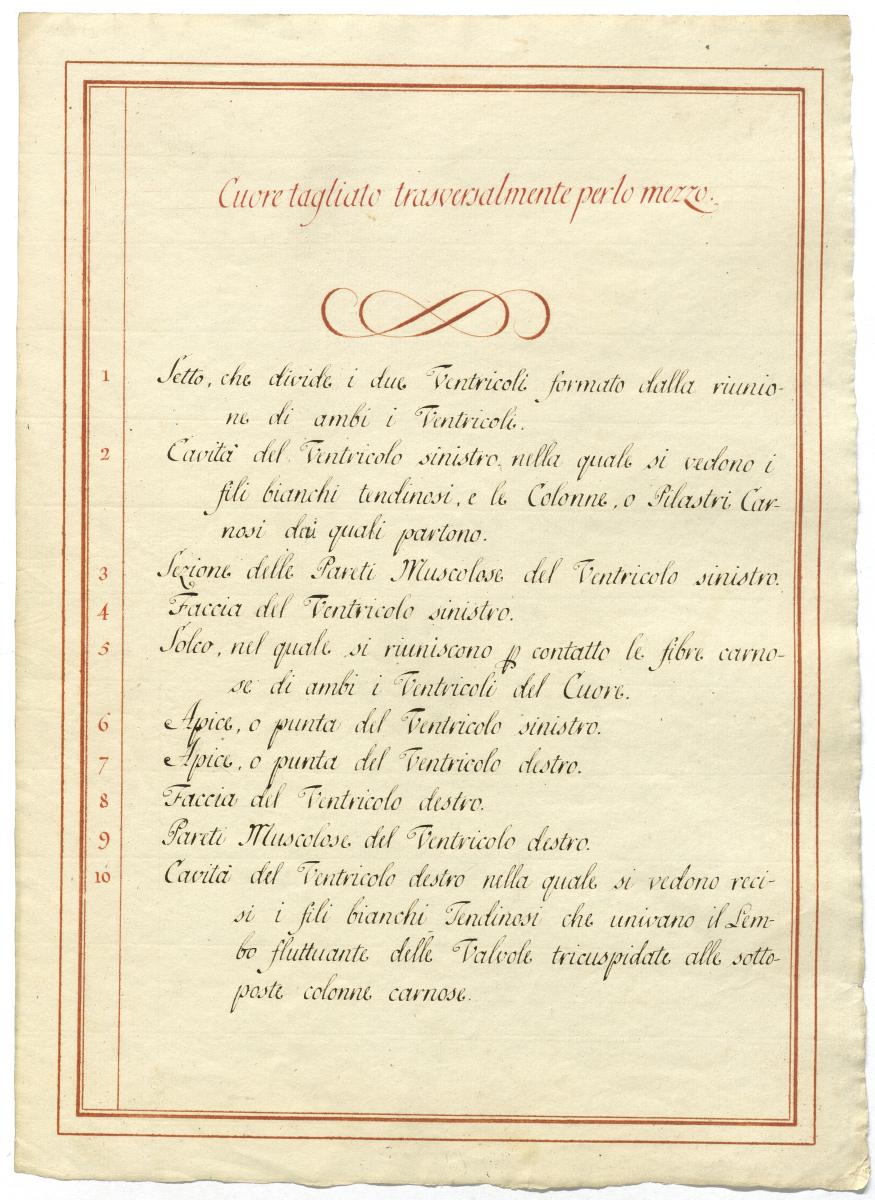 Cuore tagliato trasversalmente per lo mezzo.
1 Setto, che divide i due Ventricoli formato dalla riunio-
ne di ambi i Ventricoli.
2 Cavità del Ventricolo sinistro, nella quale si vedono i
fili bianchi tendinosi, e le Colonne, o Pilastri Car-
nosi dai quali partono.
3 Sezione delle Pareti Muscolose del Ventricolo sinistro.
4 Faccia del Ventricolo sinistro.
5 Solco, nel quale si riuniscono p contatto le fibre carno-
se di ambi i Ventricoli del Cuore.
6 Apice, o punta del Ventricolo sinistro.
7 Apice, o punta del Ventricolo destro.
8 Faccia del Ventricolo destro.
9 Pareti Muscolose del Ventricolo destro.
10 Cavità del Ventricolo destro nella quale si vedono reci-
si i fili bianchi Tendinosi che univano il Lem-
bo fluttuante delle Valvole tricuspidate alle sotto-
poste colonne carnose.